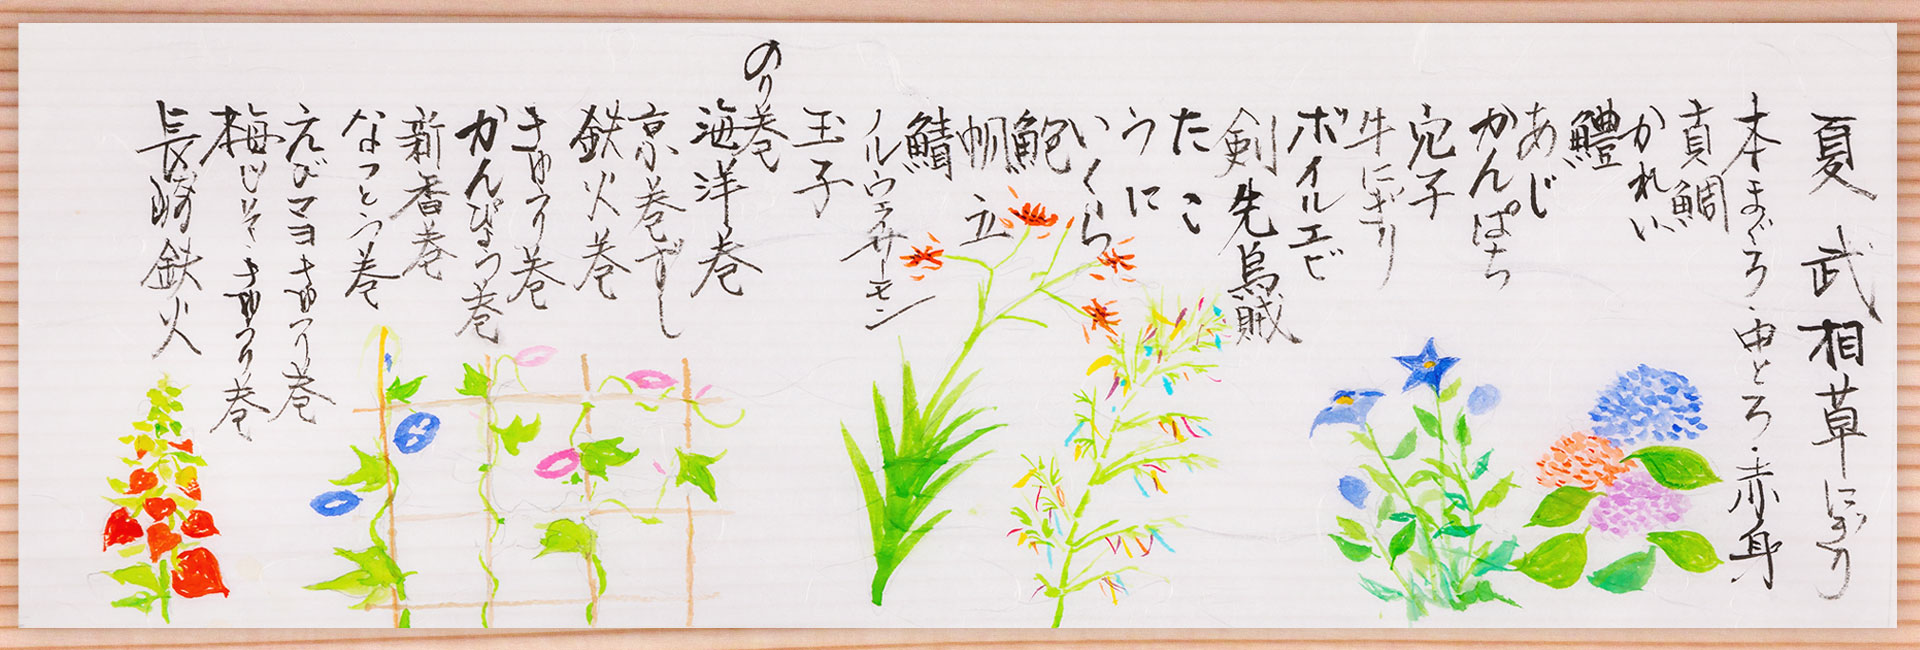 夏 武相草 にぎり
本まぐろ・中とろ・赤身
真鯛
かれい
鱧
あじ
かんぱち
穴子
牛にぎり
ボイルエビ
剣先烏賊
たこ
うに
いくら
鮑
帆立
鯖
ノルウェーサーモン
玉子
のり巻
海洋巻
京巻ずし
鉄火巻
きゅうり巻
かんぴょう巻
新香巻
なっとう巻
えびマヨきゅうり巻
梅じそきゅうり巻
長崎鉄火